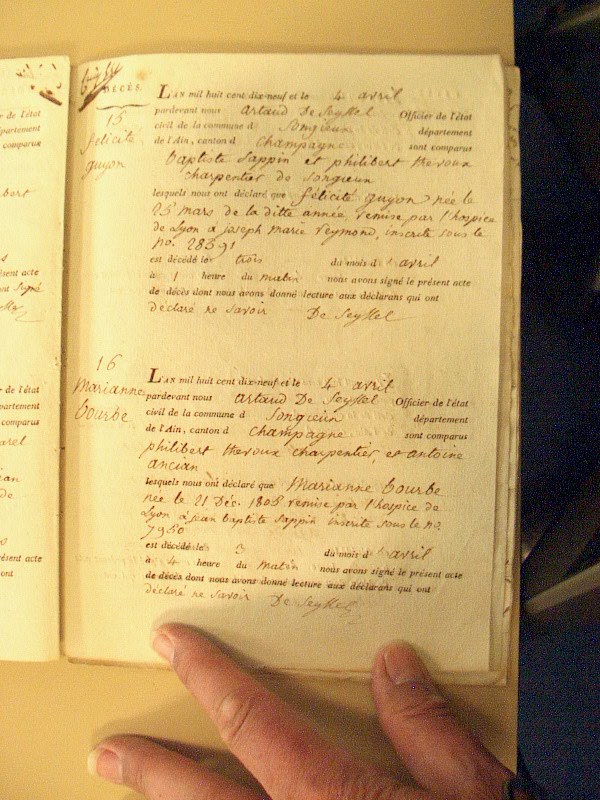 DÉCÈS.
15
félicité
guyon
L'AN mil huit cent dix-neuf et le 4 avril
pardevant nous artaud De Seyssel Officier de l'état
civil de la commune d Songieux département
de l'Ain, canton d champagne sont comparus
baptiste sappin et philibert thevoux
charpentier de songieux
lesquels nous ont déclaré que félicité guyon née le
25 mars de la ditte année, remise par l'hospice
de Lyon a joseph marie reymond, inscrite sous le
no. 28391
est décédé le trois du mois d avril
à 1 heure du matin nous avons signé le présent acte
de décès dont nous avons donné lecture aux déclarans qui ont
déclaré ne savoir De Seyssel
16
Marianne
bourbe
L'AN mil huit cent dix-neuf et le 4 avril
pardevant nous artaud De Seyssel Officier de l'état
civil de la commune d Songieux département
de l'Ain, canton d champagne sont comparus
philibert thevoux charpentier, et antoine
ancian
lesquels nous ont déclaré que Marianne bourbe
née le 21 Déc. 1805 remise par l'hospice de
Lyon a jean baptiste sappin inscrite sous le no.
7950
est décédé le 3 du mois d avril
à 4 heure du matin nous avons signé le présent acte
de décès dont nous avons donné lecture aux déclarans qui ont
déclaré ne savoir De Seyssel